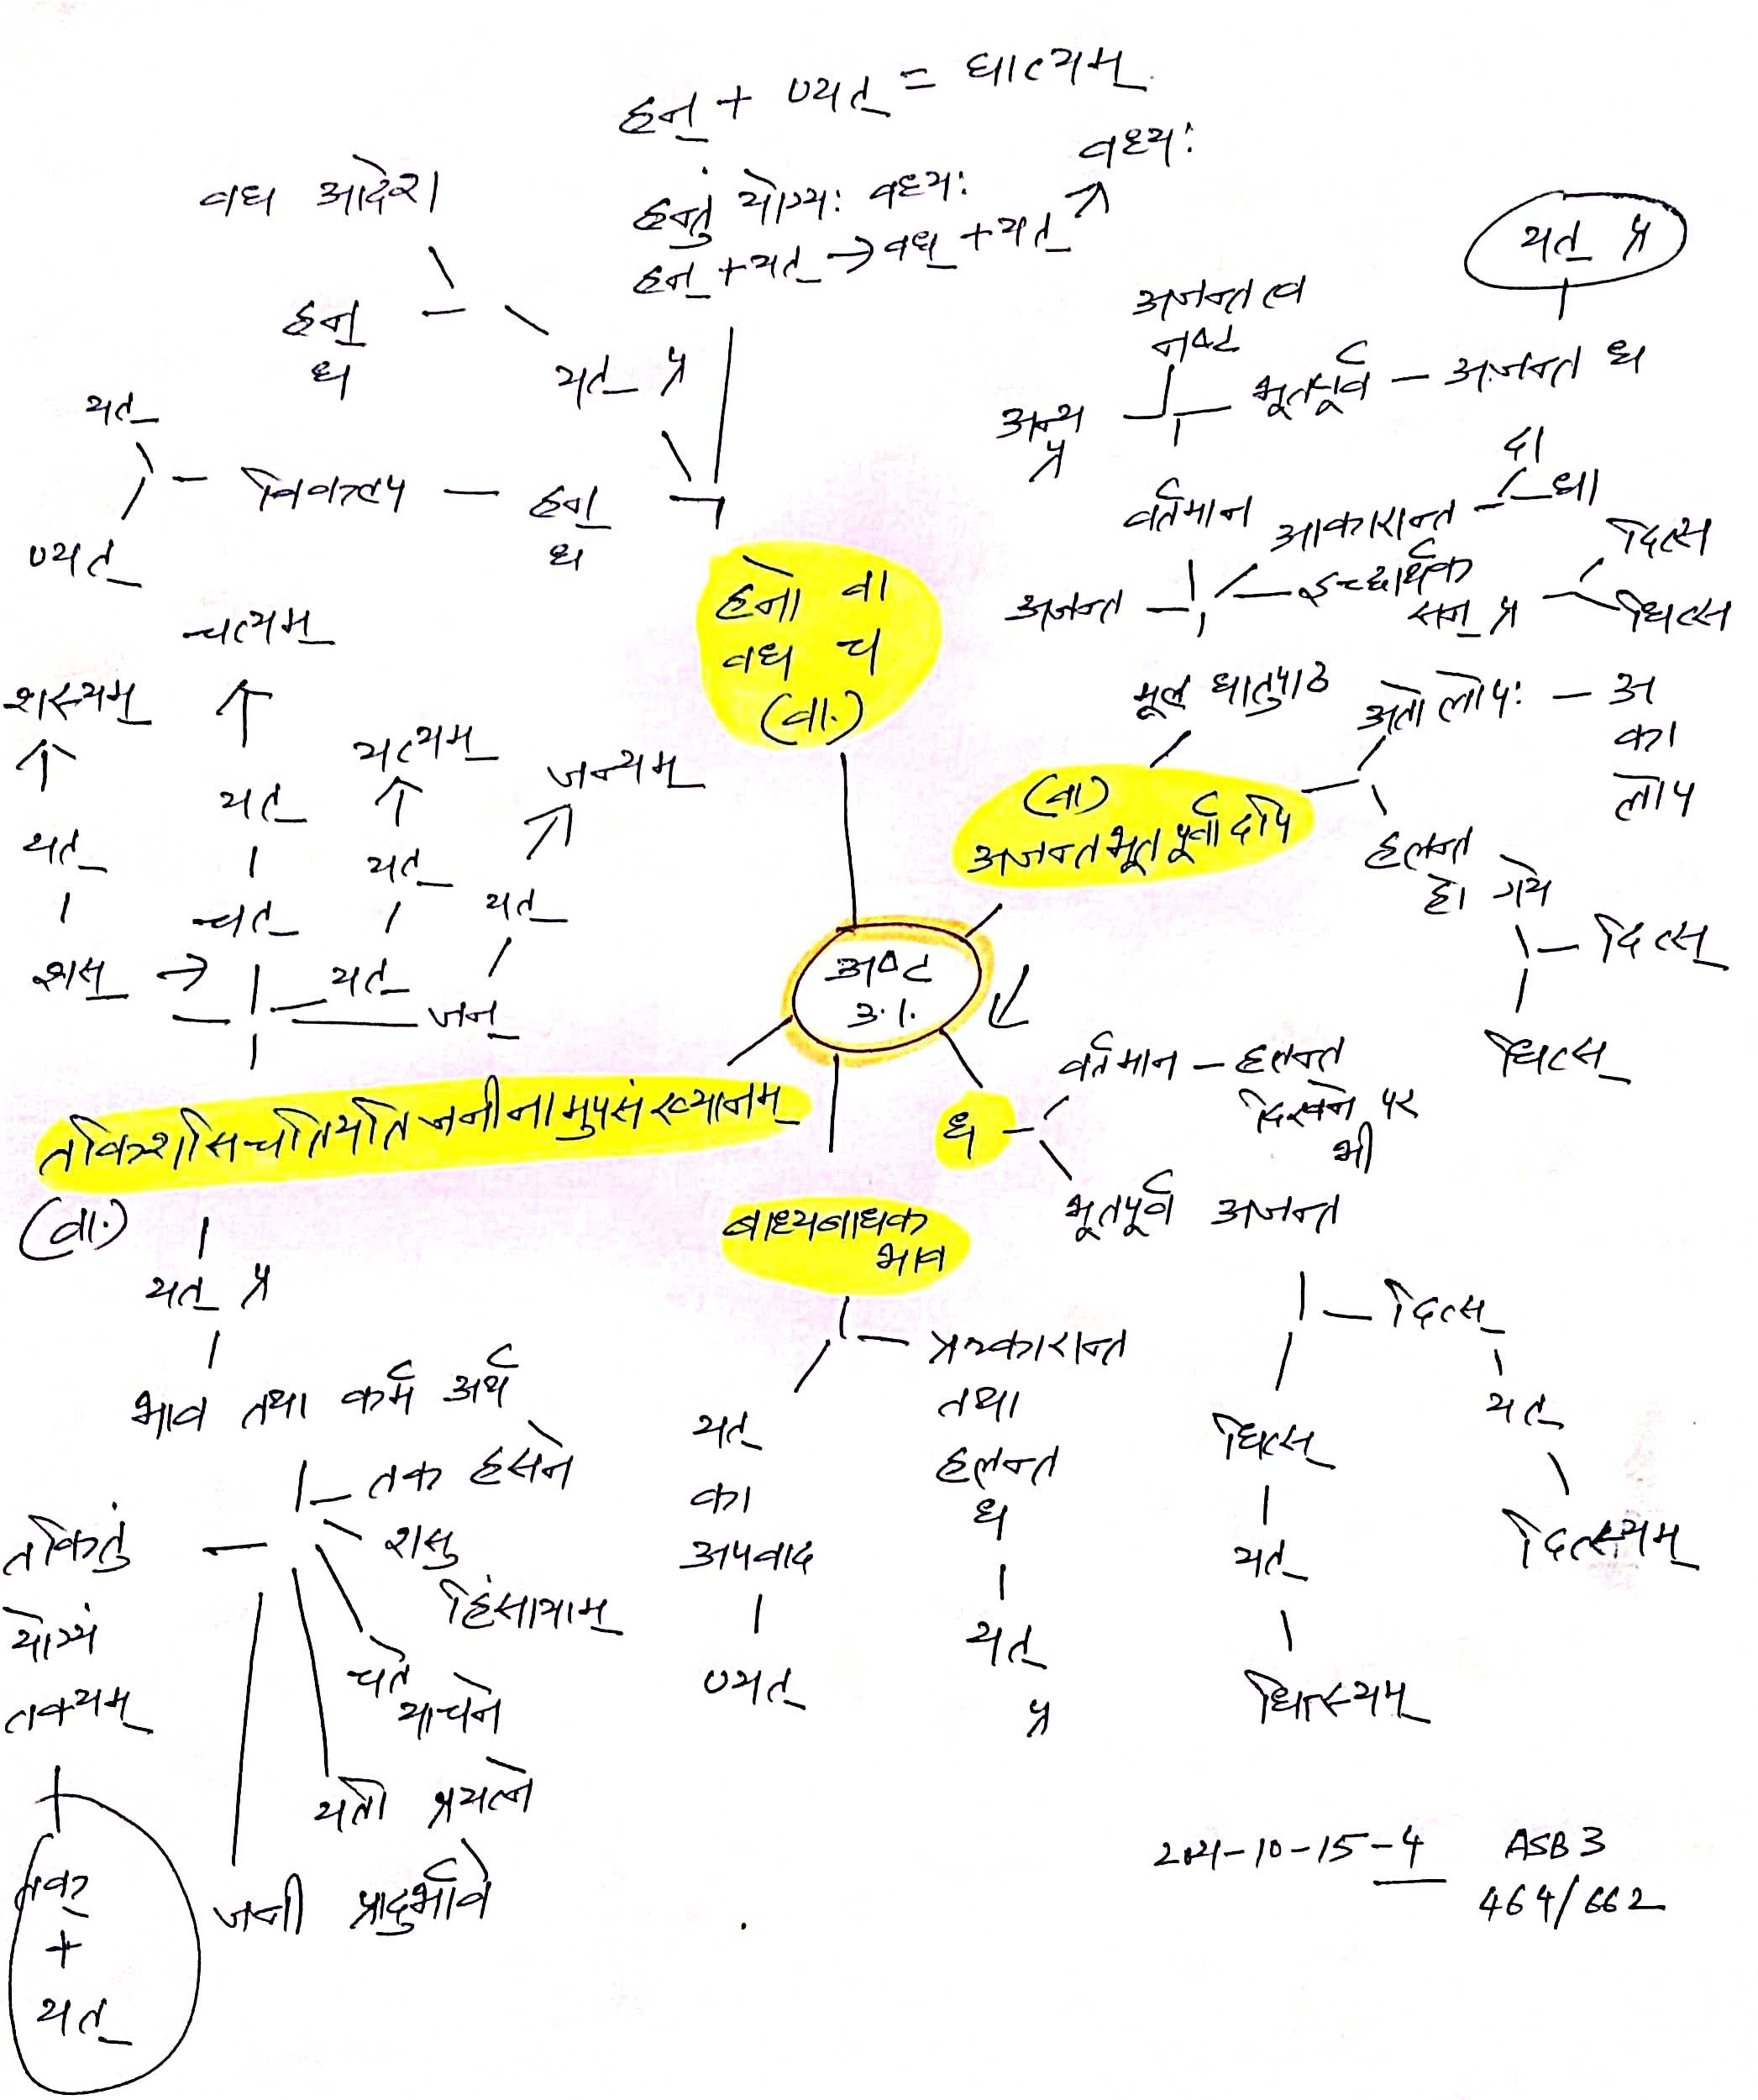 हन् + ण्यत् = घात्यम्
वध्यः
हन्तुं योग्यः वध्यः
हन् + यत् → वध् + यत्
वध आदेश
हन्
ध
यत् प्र
यत्
विकल्प
हन्
ध
ण्यत्
हनो वा
वध च
(वा.)
यत् प्र
अजन्तत्व
नष्ट
भूतपूर्व - अजन्त ध
अन्य
प्र
दा
वर्तमान
आकारान्त
धा
दित्स
अजन्त
इच्छार्थक
सन् प्र
धित्स
मूल धातुपाठ
अतो लोपः - अ
का
लोप
(वा)
अजन्तभूतपूर्वादपि
हलन्त
हो गये
दित्स्
धित्स्
चत्यम्
शस्यम्
यत्यम्
जन्यम्
यत्
यत्
यत्
यत्
चत्
शस् →
यत्
जन्
अष्ट
उ.।.
तकिशसिचतियतिजनीनामुपसंख्यानम्
(वा.)
यत् प्र
भाव तथा कर्म अर्थ
तक हसने
तकितुं
योग्यं
तक्यम्
शसु
हिंसायाम्
चते
याचने
यती प्रयत्ने
जनी प्रादुर्भावे
तक्
+
यत्
बाध्यबाधक
भाव
यत्
का
अपवाद
ण्यत्
ऋकारान्त
तथा
हलन्त
ध
यत्
प्र
ध
वर्तमान - हलन्त
दिखने पर
भी
भूतपूर्व अजन्त
दित्स्
यत्
दित्स्यम्
धित्स्
यत्
धित्स्यम्
2021-10-15-4
ASB 3
464/662